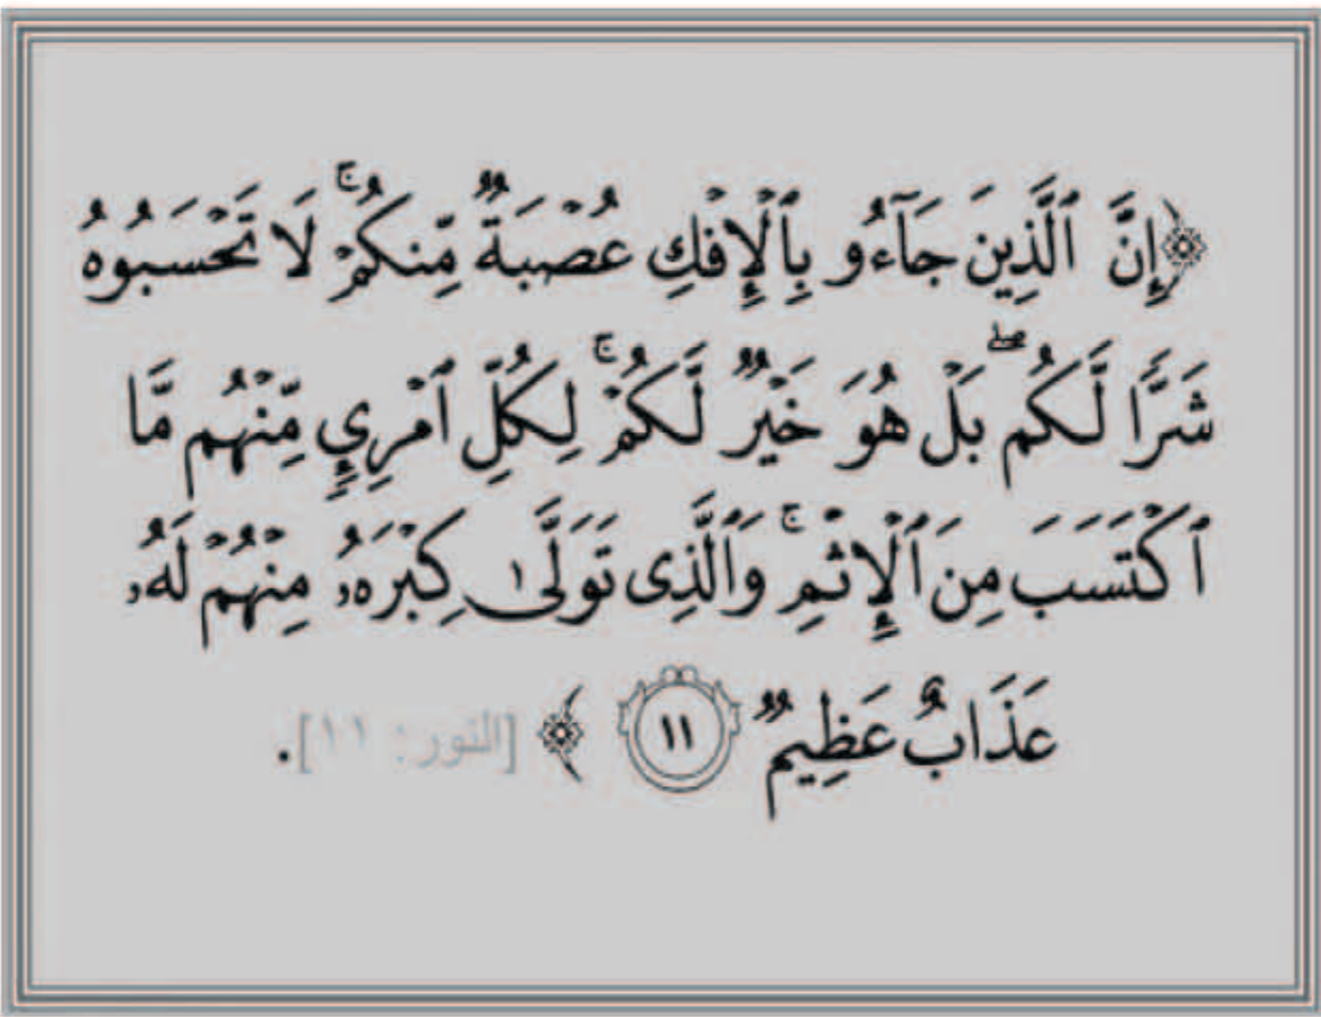 ﴿إِنَّ ٱلَّذِينَ جَآءُو بِٱلْإِفْكِ عُصْبَةٌ مِّنكُمْ ۚ لَا تَحْسَبُوهُ
شَرًّا لَّكُم ۖ بَلْ هُوَ خَيْرٌ لَّكُمْ ۚ لِكُلِّ ٱمْرِئٍ مِّنْهُم مَّا
ٱكْتَسَبَ مِنَ ٱلْإِثْمِ ۚ وَٱلَّذِى تَوَلَّىٰ كِبْرَهُۥ مِنْهُمْ لَهُۥ
عَذَابٌ عَظِيمٌ ١١ ﴾ [النور: ١١].